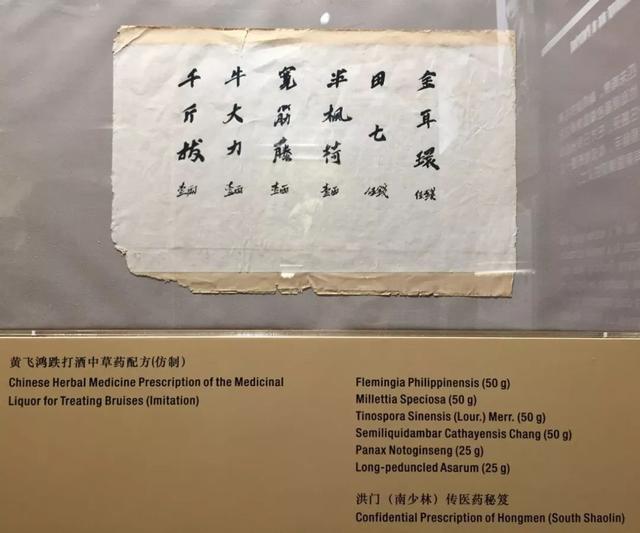 金耳環 伍錢
田七 伍錢
半枫荷 壹两
寬筋藤 壹两
牛大力 壹两
千斤拔 壹两
黄飞鸿跌打酒中草药配方(仿制)
Chinese Herbal Medicine Prescription of the Medicinal
Liquor for Treating Bruises (Imitation)
Flemingia Philippinensis (50 g)
Millettia Speciosa (50 g)
Tinospora Sinensis (Lour.) Merr. (50 g)
Semiliquidambar Cathayensis Chang (50 g)
Panax Notoginseng (25 g)
Long-peduncled Asarum (25 g)
洪门（南少林）传医药秘笈
Confidential Prescription of Hongmen (South Shaolin)